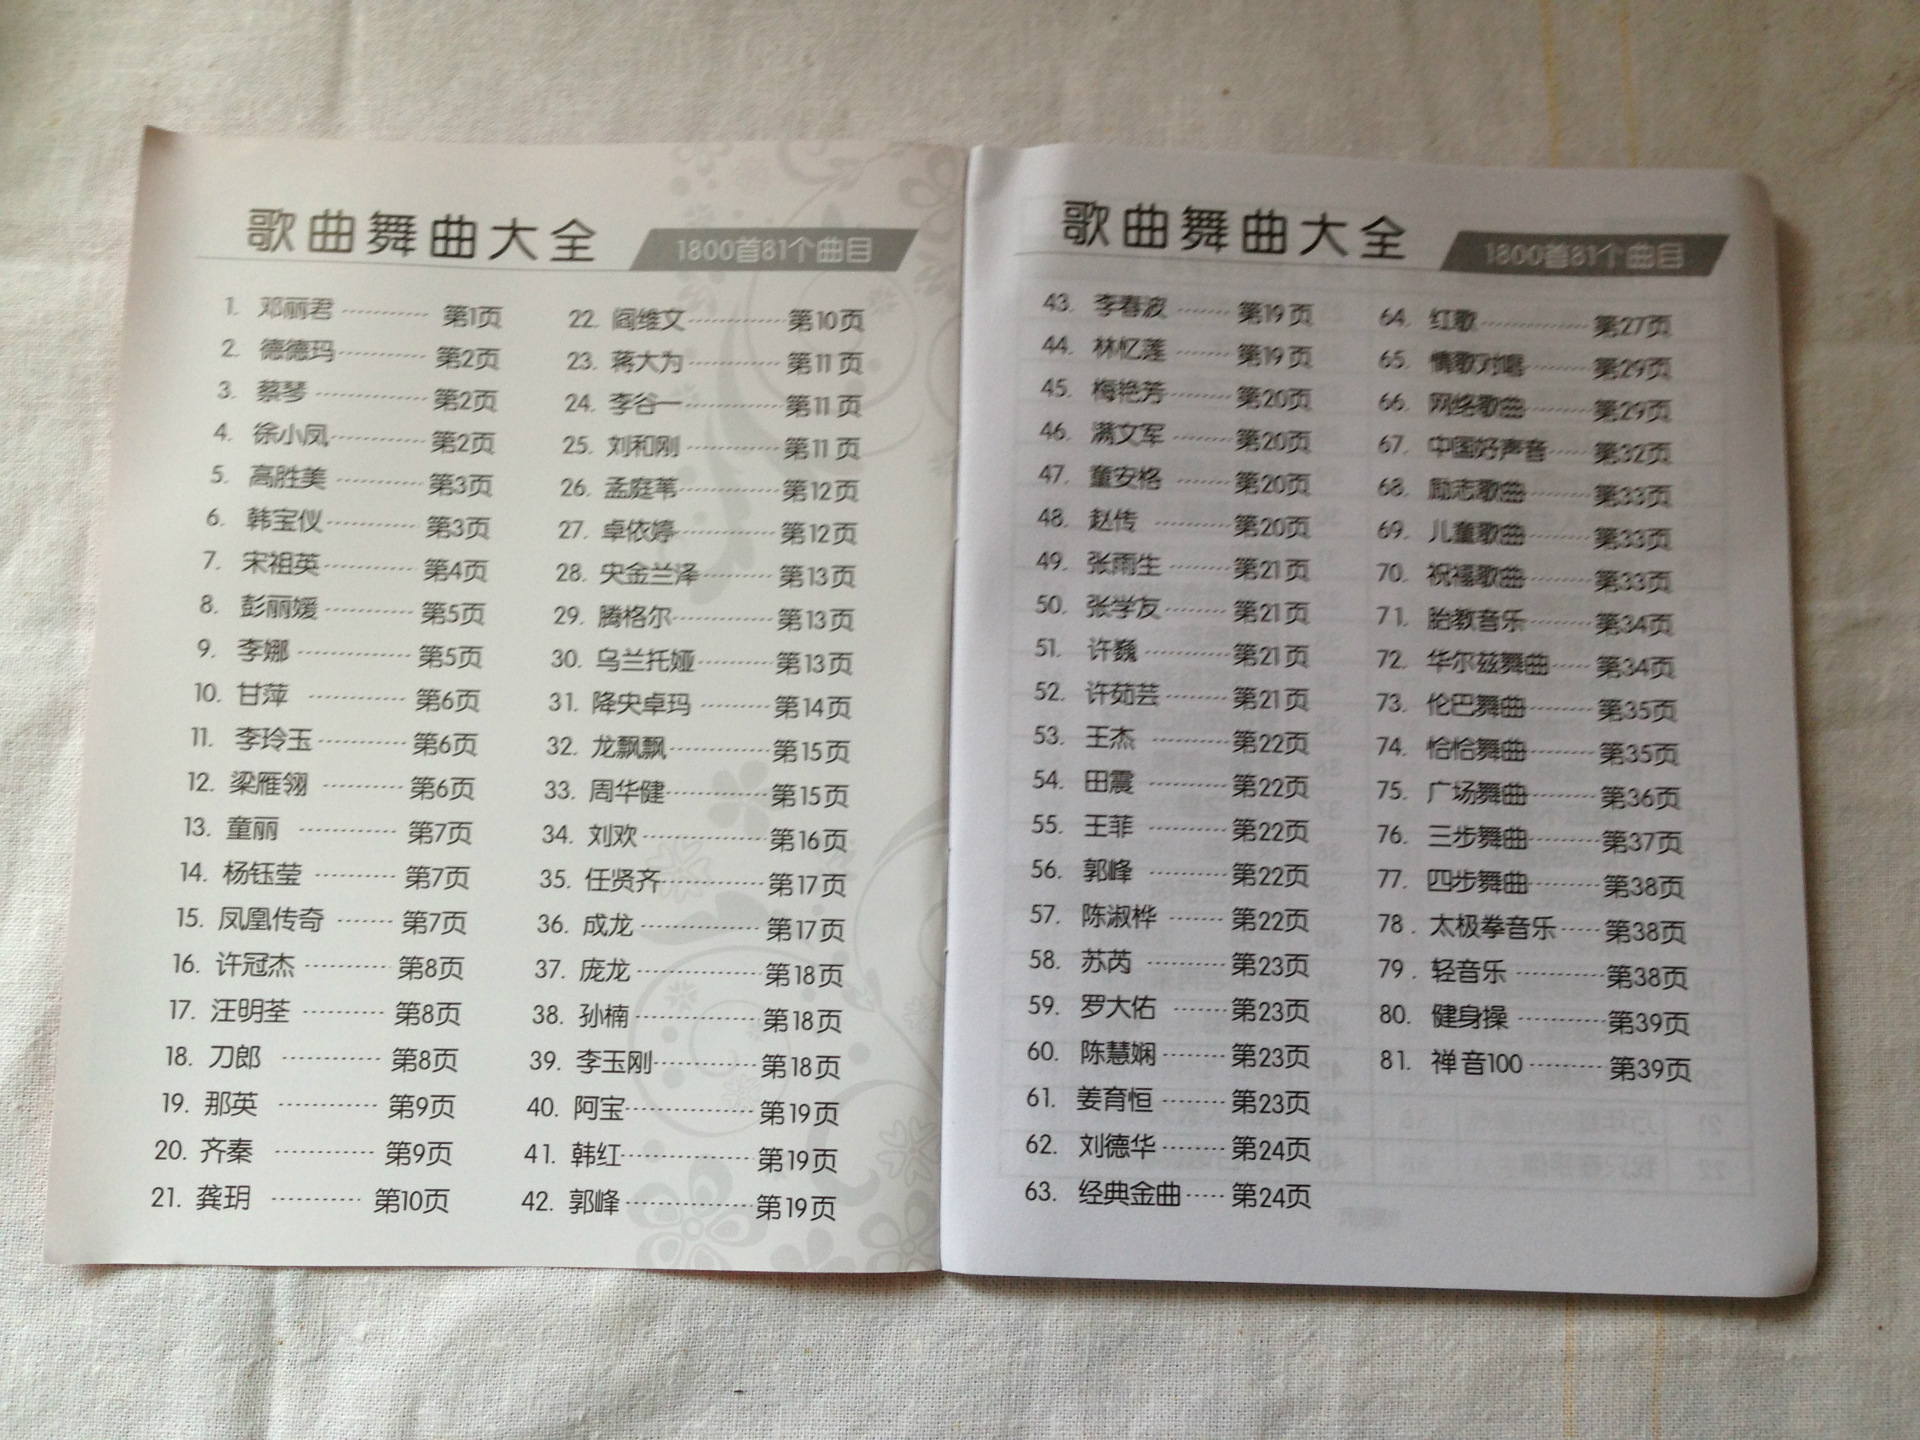 歌曲舞曲大全
1800首81个曲目
1. 邓丽君 ---------- 第1页
2. 德德玛 ---------- 第2页
3. 蔡琴 ---------- 第2页
4. 徐小凤 ---------- 第2页
5. 高胜美 ---------- 第3页
6. 韩宝仪 ---------- 第3页
7. 宋祖英 ---------- 第4页
8. 彭丽媛 ---------- 第5页
9. 李娜 ---------- 第5页
10. 甘萍 ---------- 第6页
11. 李玲玉 ---------- 第6页
12. 梁雁翎 ---------- 第6页
13. 童丽 ---------- 第7页
14. 杨钰莹 ---------- 第7页
15. 凤凰传奇 ------- 第7页
16. 许冠杰 ---------- 第8页
17. 汪明荃 ---------- 第8页
18. 刀郎 ---------- 第8页
19. 那英 ---------- 第9页
20. 齐秦 ---------- 第9页
21. 龚玥 ---------- 第10页
22. 阎维文 ---------- 第10页
23. 蒋大为 ---------- 第11页
24. 李谷一 ---------- 第11页
25. 刘和刚 ---------- 第11页
26. 孟庭苇 ---------- 第12页
27. 卓依婷 ---------- 第12页
28. 央金兰泽 ------- 第13页
29. 腾格尔 ---------- 第13页
30. 乌兰托娅 ------- 第13页
31. 降央卓玛 ------- 第14页
32. 龙飘飘 ---------- 第15页
33. 周华健 ---------- 第15页
34. 刘欢 ---------- 第16页
35. 任贤齐 ---------- 第17页
36. 成龙 ---------- 第17页
37. 庞龙 ---------- 第18页
38. 孙楠 ---------- 第18页
39. 李玉刚 ---------- 第18页
40. 阿宝 ---------- 第19页
41. 韩红 ---------- 第19页
42. 郭峰 ---------- 第19页
歌曲舞曲大全
1800首81个曲目
43. 李春波 ------- 第19页
44. 林忆莲 ------- 第19页
45. 梅艳芳 ------- 第20页
46. 满文军 ------- 第20页
47. 童安格 ------- 第20页
48. 赵传 ------- 第20页
49. 张雨生 ------- 第21页
50. 张学友 ------- 第21页
51. 许巍 ------- 第21页
52. 许茹芸 ------- 第21页
53. 王杰 ------- 第22页
54. 田震 ------- 第22页
55. 王菲 ------- 第22页
56. 郭峰 ------- 第22页
57. 陈淑桦 ------- 第22页
58. 苏芮 ------- 第23页
59. 罗大佑 ------- 第23页
60. 陈慧娴 ------- 第23页
61. 姜育恒 ------- 第23页
62. 刘德华 ------- 第24页
63. 经典金曲 ----- 第24页
64. 红歌 ---------- 第27页
65. 情歌对唱 ------- 第29页
66. 网络歌曲 ------- 第29页
67. 中国好声音 ----- 第32页
68. 励志歌曲 ------- 第33页
69. 儿童歌曲 ------- 第33页
70. 祝福歌曲 ------- 第33页
71. 胎教音乐 ------- 第34页
72. 华尔兹舞曲 ----- 第34页
73. 伦巴舞曲 ------- 第35页
74. 恰恰舞曲 ------- 第35页
75. 广场舞曲 ------- 第36页
76. 三步舞曲 ------- 第37页
77. 四步舞曲 ------- 第38页
78. 太极拳音乐 ----- 第38页
79. 轻音乐 ---------- 第38页
80. 健身操 ---------- 第39页
81. 禅音100 --------- 第39页